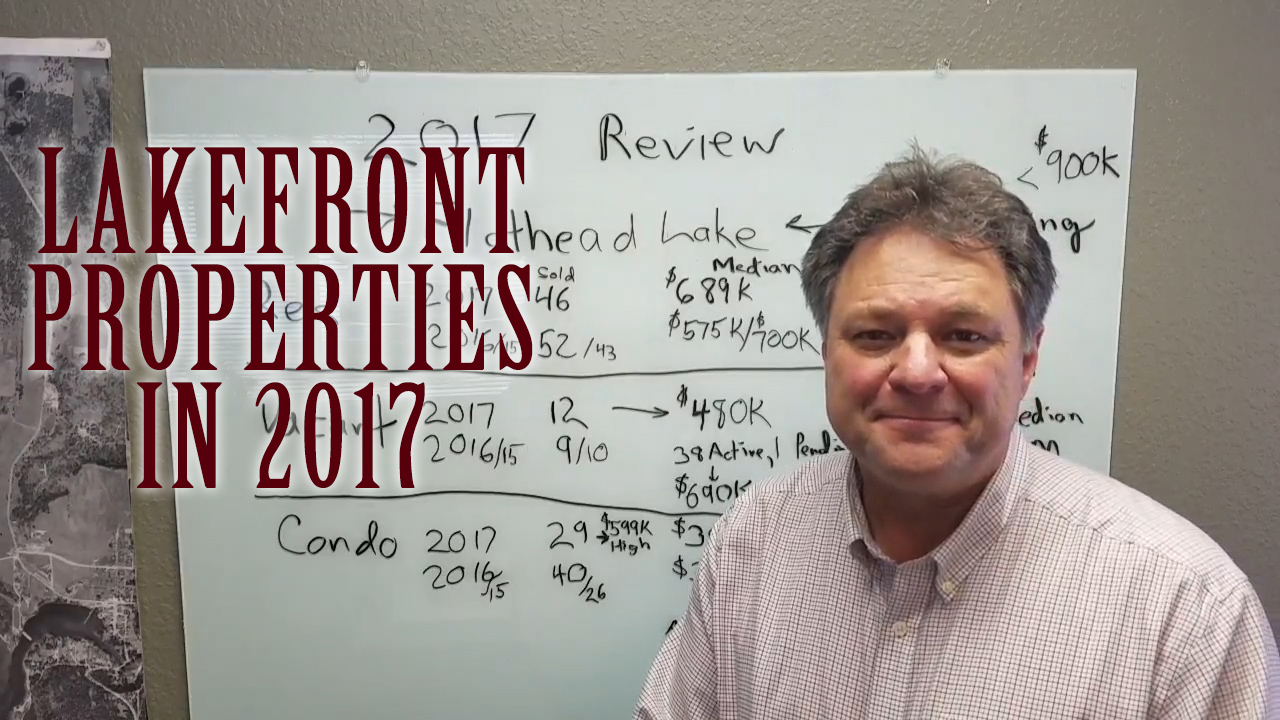 LAKEFRONT
PROPERTIES
IN 2017
2017 Review
< $900K
thead Lake ←
Sold Median
2017 46 $689K
2016/15 52/43 $575K/$700K
Vacant 2017 12 → $480K
2016/15 9/10 38 Active, 1
$690K
Condo 2017 29 → $599K High
2016/15 40/26